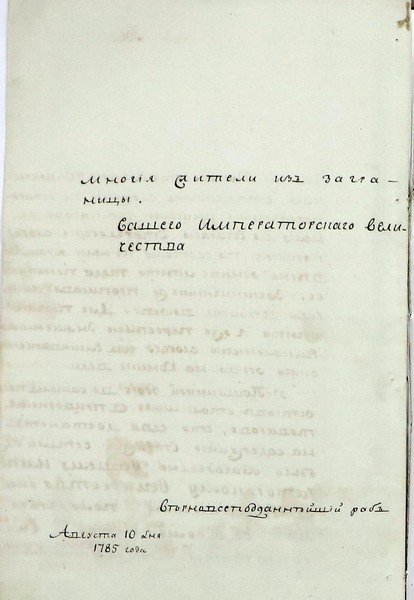 многія жители изъ загра–
ницы.
Вашего Императорскаго вели-
чества
всеподданнѣйшій рабъ
Августа 10 дня
1785 года